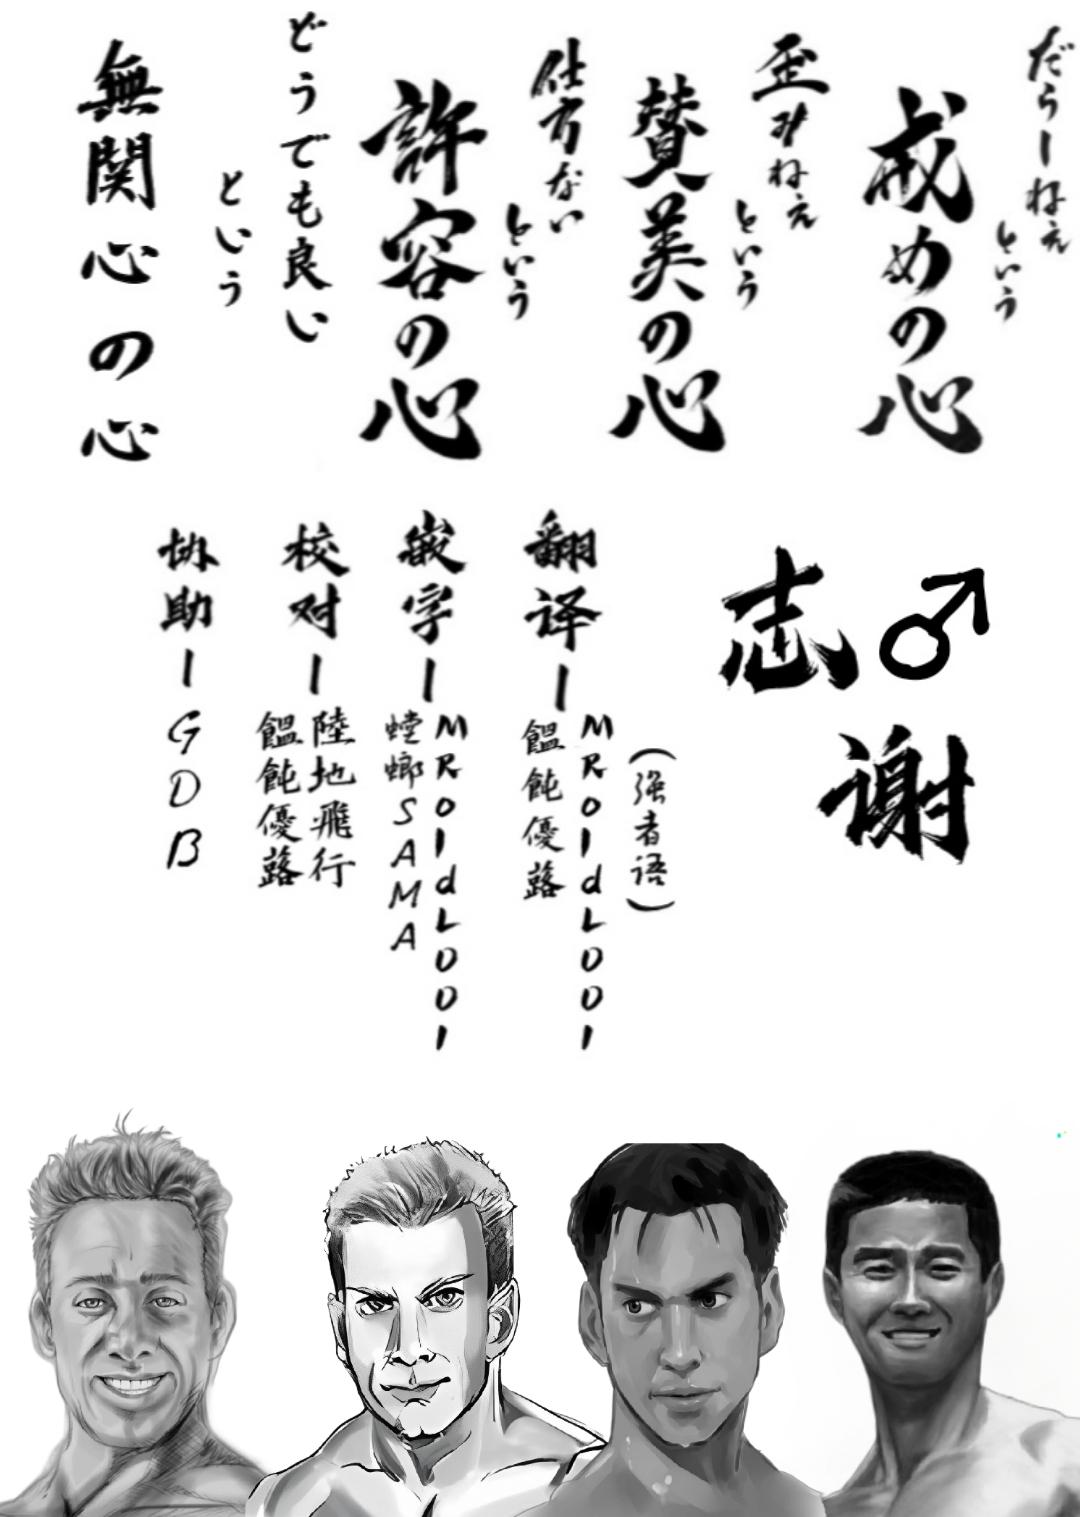 だらしねえ
という
戒めの心
歪みねえ
という
賛美の心
仕方ない
という
許容の心
どうでも良い
という
無関心の心
志♂
谢
翻译ー
(强者语)
MROldLDDI
餛飩優蕗
嵌字ー
MROldLDDI
螳螂SAMA
校对ー
陸地飛行
餛飩優蕗
协助ー
GDB